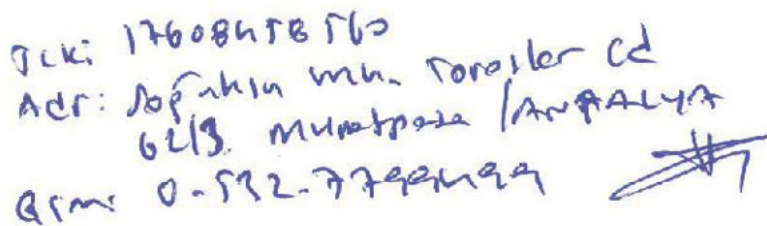 TCK: 17608458560
Adr: Soğuksu mh. Toroslar Cd
62/3 Muratpaşa / ANTALYA
GSM: 0-532-7799499